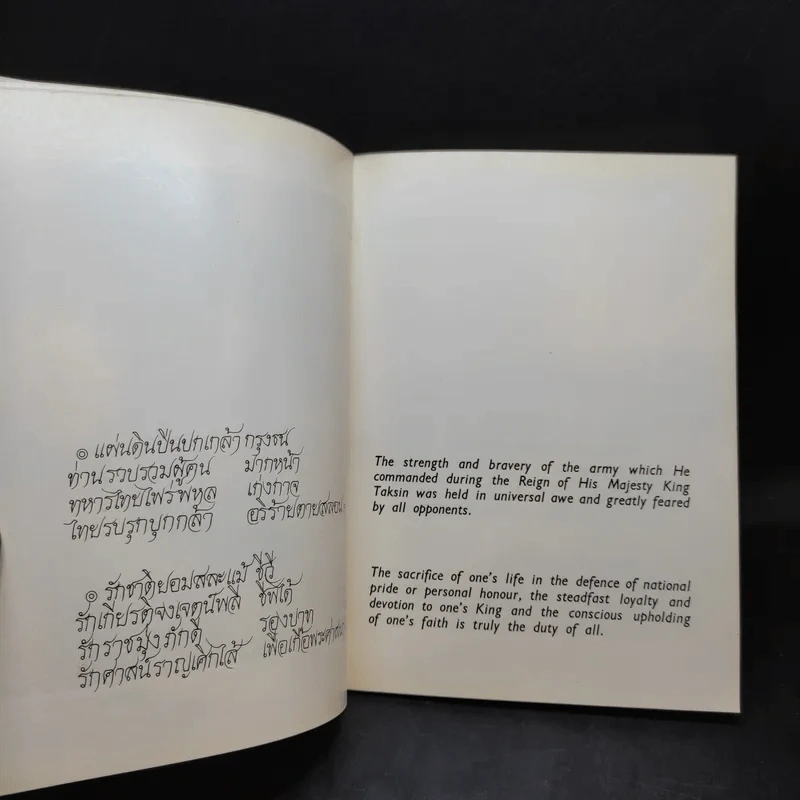 ๏ แผ่นดินปิ่นปกเกล้า กรุงธน
ท่านรวบรวมผู้คน มากหน้า
ทหารไทยไพร่พหล เก่งกาจ
ไทยรบรุกบุกกล้า อริร้ายตายสลอน
๏ รักชาติยอมสละแม้ ชีวี
รักเกียรติจงเจตน์พลี ชีพได้
รักราชมุ่งภักดี รองบาท
รักศาสน์ราญเศิกไส้ เพื่อเกื้อพระศาสนา
The strength and bravery of the army which He
commanded during the Reign of His Majesty King
Taksin was held in universal awe and greatly feared
by all opponents.
The sacrifice of one's life in the defence of national
pride or personal honour, the steadfast loyalty and
devotion to one's King and the conscious upholding
of one's faith is truly the duty of all.